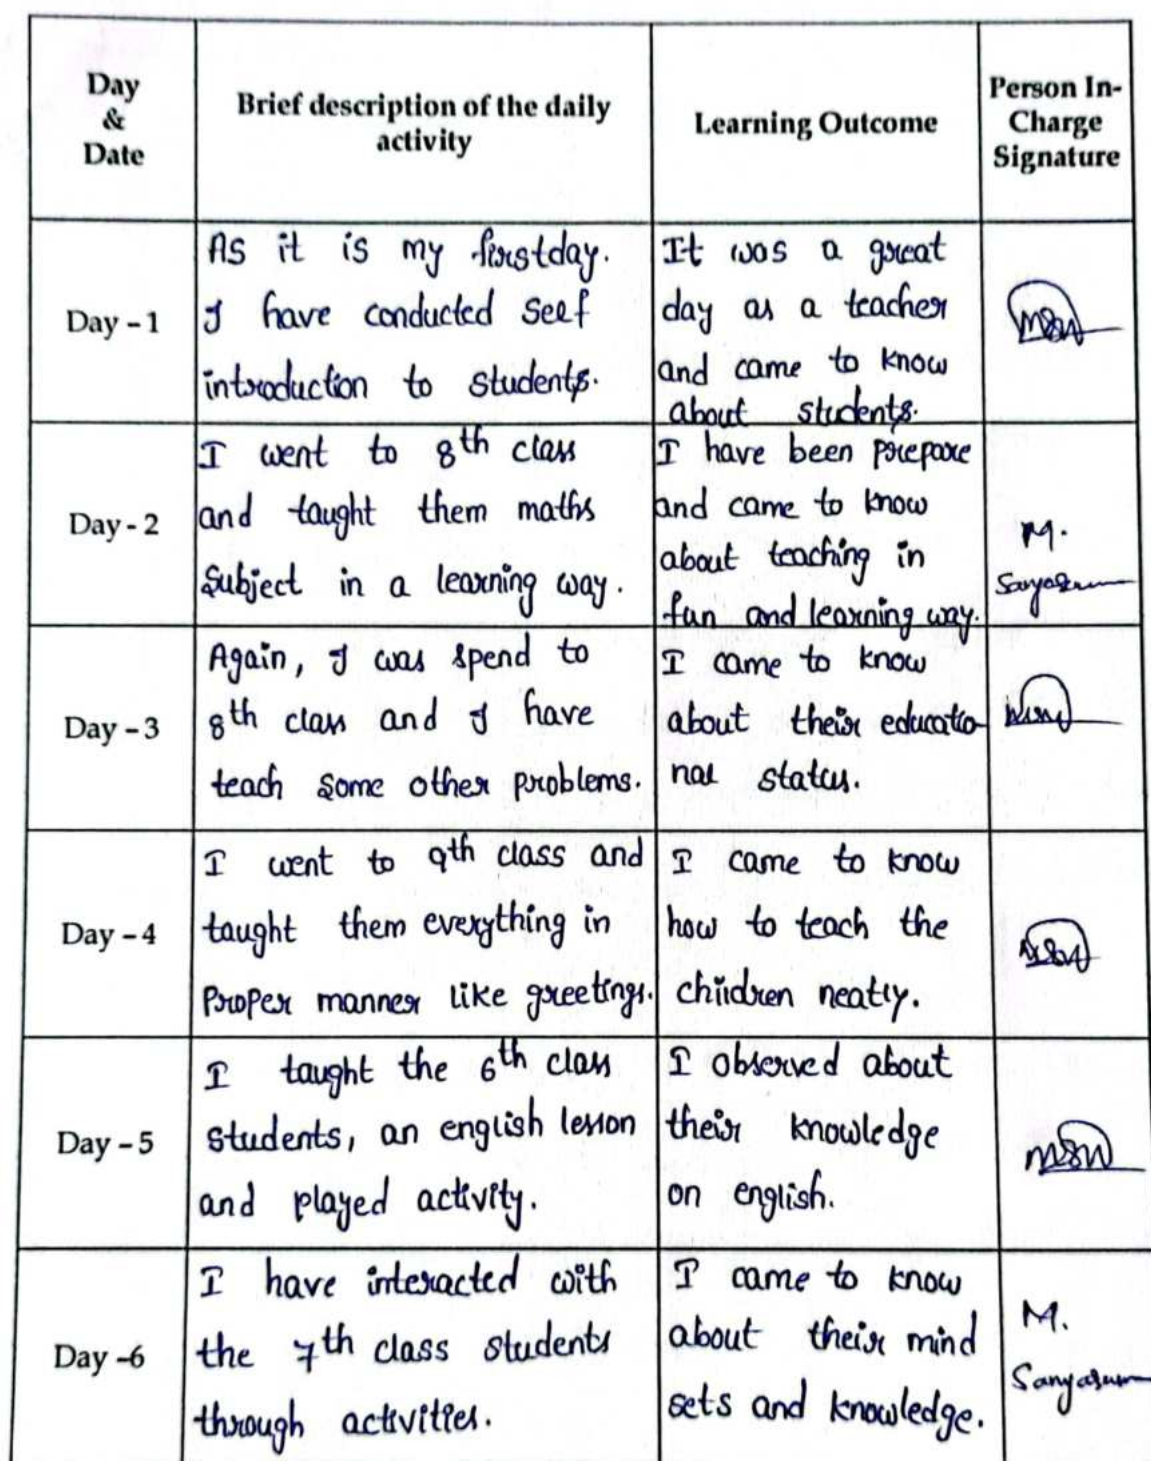 Day
&
Date
Brief description of the daily
activity
Learning Outcome
Person In-
Charge
Signature
Day - 1
As it is my firstday.
I have conducted self
introduction to students.
It was a great
day as a teacher
and came to know
about students.
Day - 2
I went to 8th class
and taught them maths
Subject in a learning way.
I have been prepare
and came to know
about teaching in
fun and learning way.
M.
Day - 3
Again, I was spend to
8th class and I have
teach some other problems.
I came to know
about their educatio-
nal status.
Day - 4
I went to 9th class and
taught them everything in
proper manner like greetings.
I came to know
how to teach the
children neatly.
Day - 5
I taught the 6th class
students, an english lesson
and played activity.
I observed about
their knowledge
on english.
Day -6
I have interacted with
the 7th class students
through activities.
I came to know
about their mind
sets and knowledge.
M.